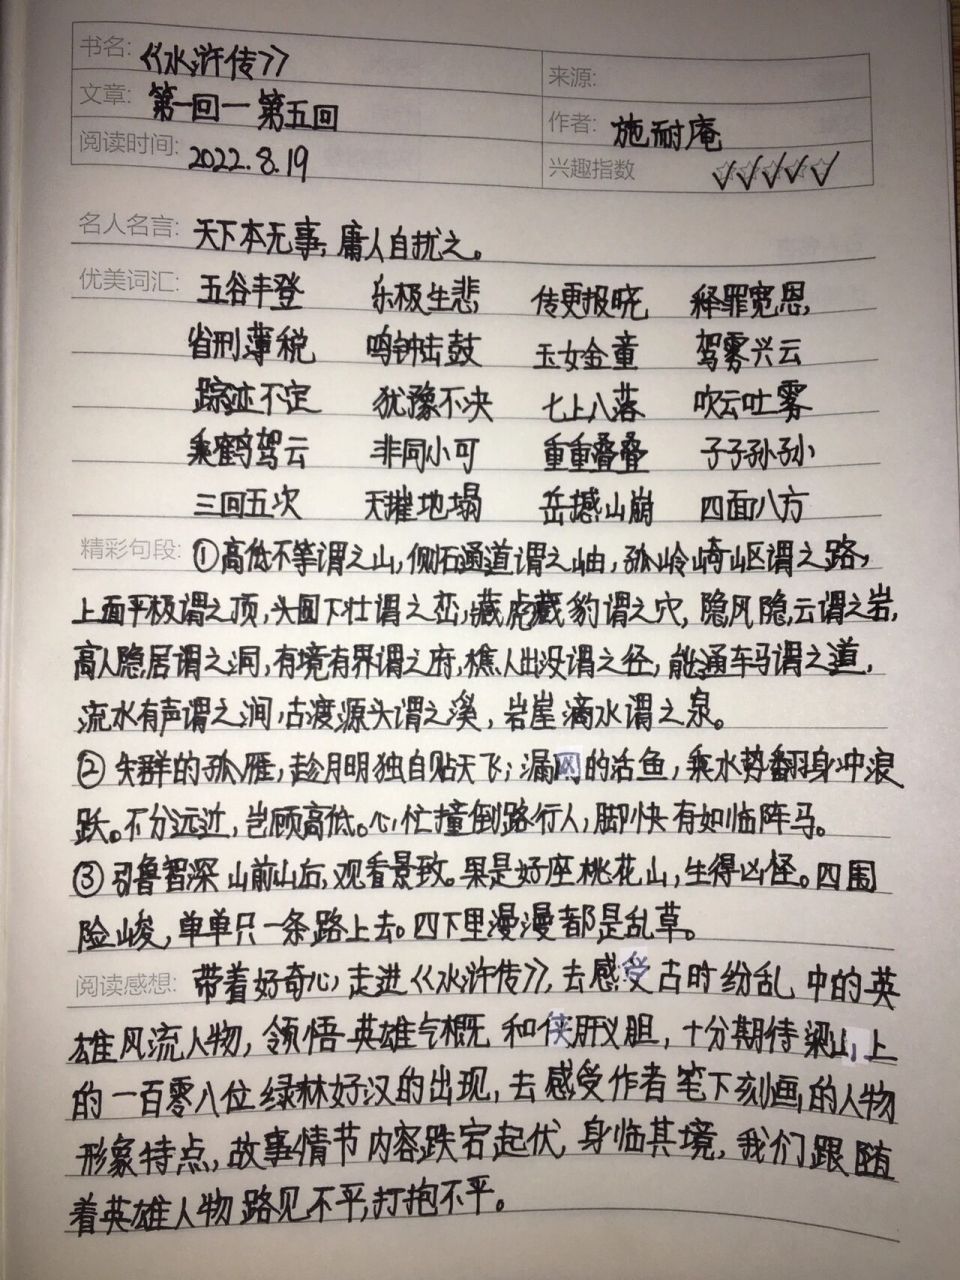 书名: 《水浒传》
来源:
文章: 第一回一第五回
作者: 施耐庵
阅读时间: 2022.8.19
兴趣指数 ✓✓✓✓✓
名人名言: 天下本无事,庸人自扰之。
优美词汇: 五谷丰登 乐极生悲 传更报晓 释罪宽恩
省刑薄税 鸣钟击鼓 玉女金童 驾雾兴云
踪迹不定 犹豫不决 七上八落 吹云吐雾
乘鹤驾云 非同小可 重重叠叠 子子孙孙
三回五次 天摧地塌 岳撼山崩 四面八方
精彩句段: ①高低不等谓之山,侧石通道谓之岫,孤岭崎岖谓之路,
上面平极谓之顶,头圆下壮谓之峦,藏虎藏豹谓之穴,隐风隐云谓之岩,
高人隐居谓之洞,有境有界谓之府,樵人出没谓之径,能通车马谓之道,
流水有声谓之涧,古渡源头谓之溪,岩崖滴水谓之泉。
②失群的孤雁,趁月明独自贴天飞;漏网的活鱼,乘水势翻身冲浪
跃。不分远近,岂顾高低。心忙撞倒路行人,脚快有如临阵马。
③引鲁智深山前山后,观看景致。果是好座桃花山,生得凶怪。四围
险峻,单单只一条路上去。四下里漫漫都是乱草。
阅读感想: 带着好奇心走进《水浒传》,去感受古时纷乱中的英
雄风流人物,领悟英雄气概和侠肝义胆,十分期待梁山上
的一百零八位绿林好汉的出现,去感受作者笔下刻画的人物
形象特点,故事情节内容跌宕起伏,身临其境,我们跟随
着英雄人物路见不平,打抱不平。